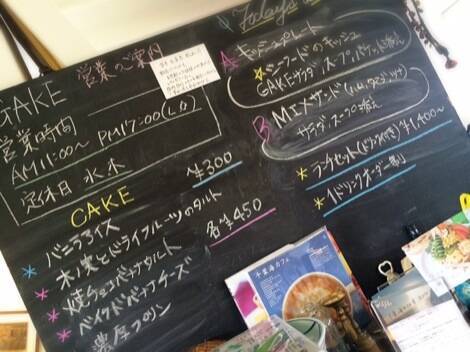 GAKE 営業のご案内
営業時間
AM11:00~ PM17:00(L.O)
定休日 水木
CAKE
バニラアイス ¥300
木ノ実とドライフルーツのタルト
焼チョコバナナタルト 各¥450
ベイクドバナナチーズ
濃厚プリン
Today's
A キッシュプレート
シーフードのキッシュ
GAKEサラダ、スープ、バゲット添え
B MIXサンド(ハム、タマゴ、ツナ)
サラダ、スープ添え
ランチセット(ドリンク付き)¥1,400~
1ドリンクオーダー制
千葉海カフェ